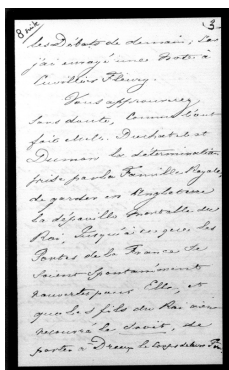 8 suite 3.
les Débats de demain; j'en
j'ai envoyé une Note à
Cuvillier Fleury.
Vous approuverez
sans doute, comme l'ont
fait MM. Duchatel et
Dumon la détermination
prise par la Famille Royale,
de garder en Angleterre
la dépouille mortelle du
Roi, jusqu'à ce que les
Portes de la France se
soient spontanément
rouvertes pour Elle, et
que les fils du Roi aient
recouvré le droit, de
porter à Dreux le corps de leur